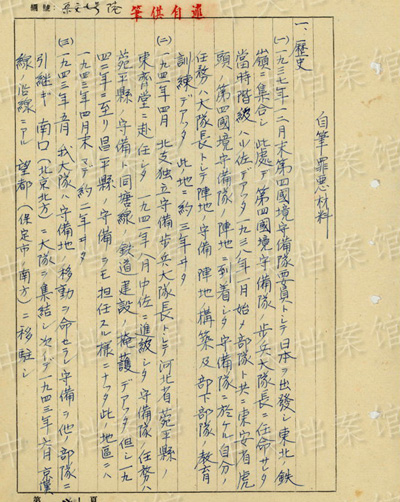 編號：
筆供自述
自筆罪悪材料
一、歴史
(一)一九三七年一二月末第四國境守備隊要員トシテ日本ヲ出發シ東北鉄
嶺ニ集合シ此處デ第四國境守備隊ノ歩兵大隊長ニ任命セラレ
當時階級ハ少佐デアッタ一九三八年三月始メ部隊ト共ニ東安省虎
頭ノ第四國境守備隊ノ陣地ニ到着シタ守備隊ニ於ケル自分ノ
任務ハ大隊長トシテ陣地ノ守備陣地構築及部下部隊ノ教育
訓練デアッタ此地ニ約三年ヰタ
(二)一九四一年四月北支独立守備歩兵大隊長トシテ河北省苑平縣ノ
東斉堂ニ赴任シタ一九四一年八月中佐ニ進級シタ守備隊任務ハ
苑平縣ノ守備ト同塘線ノ鉄道建設ノ掩護デアッタ但シ一九
四二年ニ至リ昌平縣ノ守備ヲモ担任スル様ニナッタ此ノ地區ニハ
一九四三年四月末マデ約二年ヰタ
(三)一九四三年五月我大隊ハ守備地ノ移動ヲ命セラレ守備ヲ他ノ部隊ニ
引継ギ南口(北京北方)ニ大隊ヲ集結シ次テ一九四三年六月京漢
線ノ沿線ニアル望都(保定市南方)ニ移駐シ
第 頁
中央档案馆